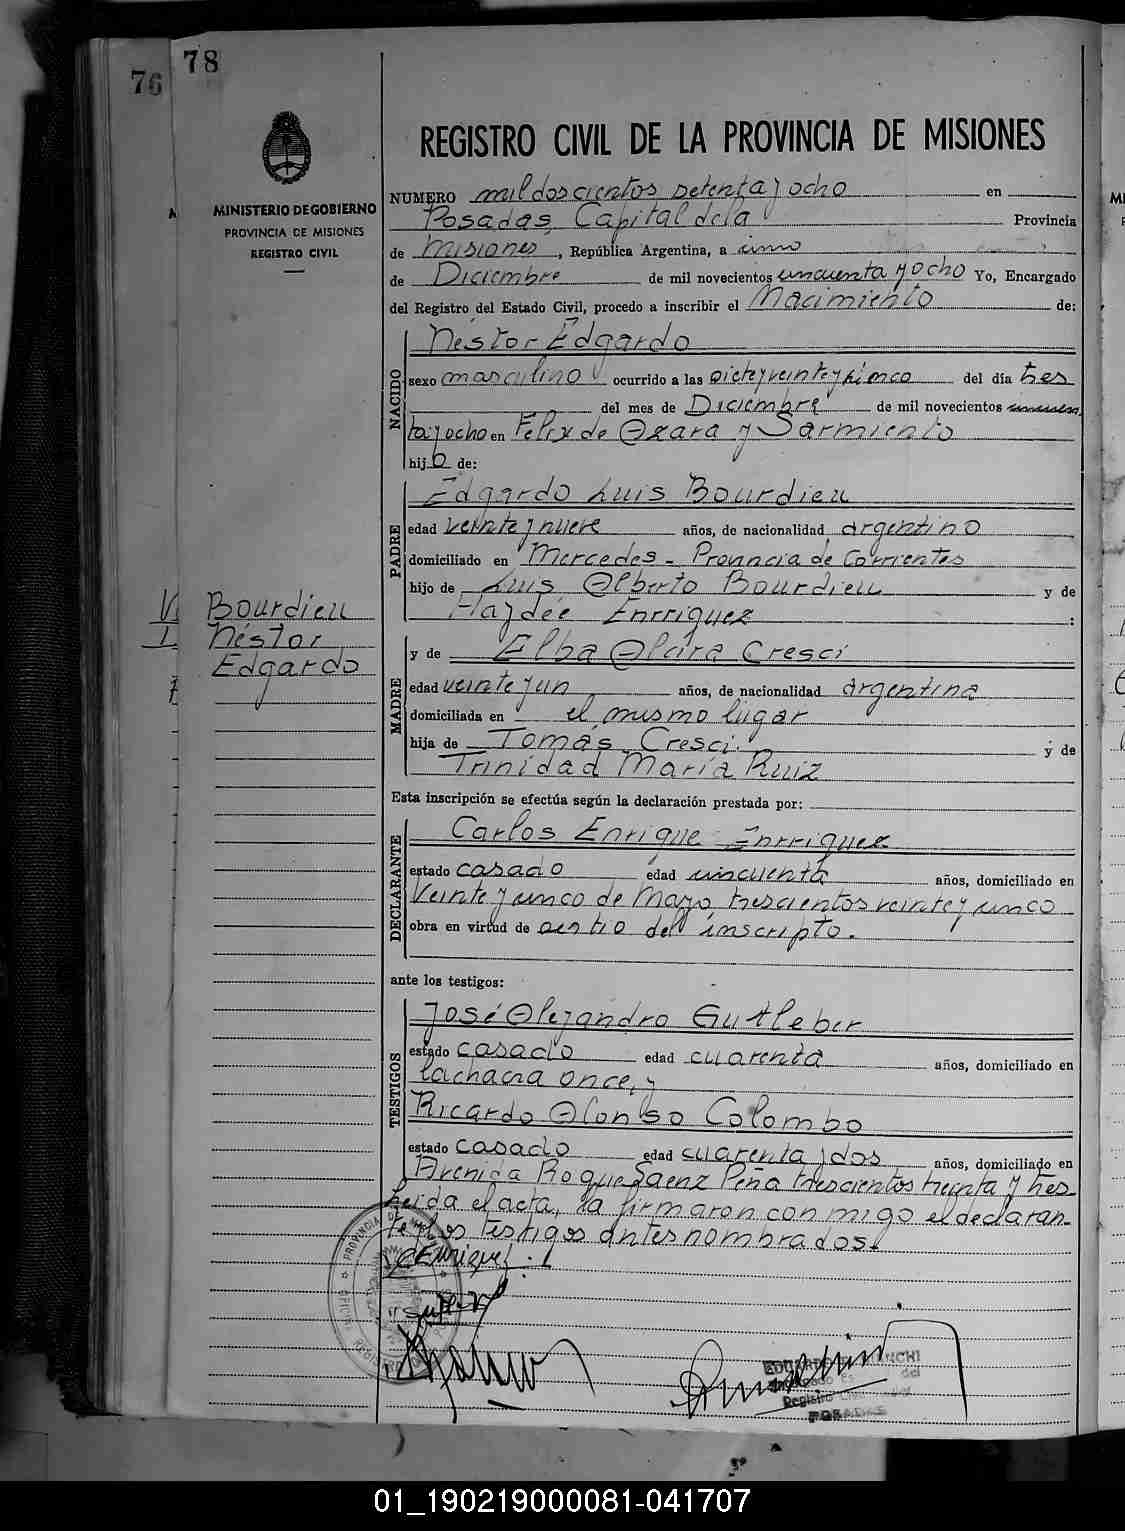 76
78
MINISTERIO DE GOBIERNO
PROVINCIA DE MISIONES
REGISTRO CIVIL
Bourdieu
Néstor
Edgardo
REGISTRO CIVIL DE LA PROVINCIA DE MISIONES
NUMERO mil doscientos setenta y ocho en
Posadas, Capital de la Provincia
de Misiones, República Argentina, a cinco
de Diciembre de mil novecientos cincuenta y ocho Yo, Encargado
del Registro del Estado Civil, procedo a inscribir el Nacimiento de:
NACIDO
Néstor Edgardo
sexo masculino ocurrido a las siete y veinte y cinco del día tres
del mes de Diciembre de mil novecientos cincuen
ta y ocho en Felix de Azara y Sarmiento
hijo de:
PADRE
Edgardo Luis Bourdieu
edad veinte y nueve años, de nacionalidad argentino
domiciliado en Mercedes - Provincia de Corrientes
hijo de Luis Alberto Bourdieu y de
Haydée Enrriquez :
MADRE
y de Elba Alcira Cresci
edad veinte y un años, de nacionalidad argentina
domiciliada en el mismo lugar
hija de Tomás Cresci. y de
Trinidad María Ruiz
Esta inscripción se efectúa según la declaración prestada por:
DECLARANTE
Carlos Enrique Enrriquez
estado casado edad cincuenta años, domiciliado en
Veinte y cinco de Mayo, trescientos veinte y cinco
obra en virtud de del inscripto.
ante los testigos:
TESTIGOS
José Alejandro Gutleber
estado casado edad cuarenta años, domiciliado en
la chacra once, y
Ricardo Alonso Colombo
estado casado edad cuarenta y dos años, domiciliado en
Avenida Roque Saenz Peña trescientos treinta y tres
Leida el acta, la firmaron conmigo el declaran-
te y los testigos antes nombrados.
CEnriquez
POSADAS
01_190219000081-041707